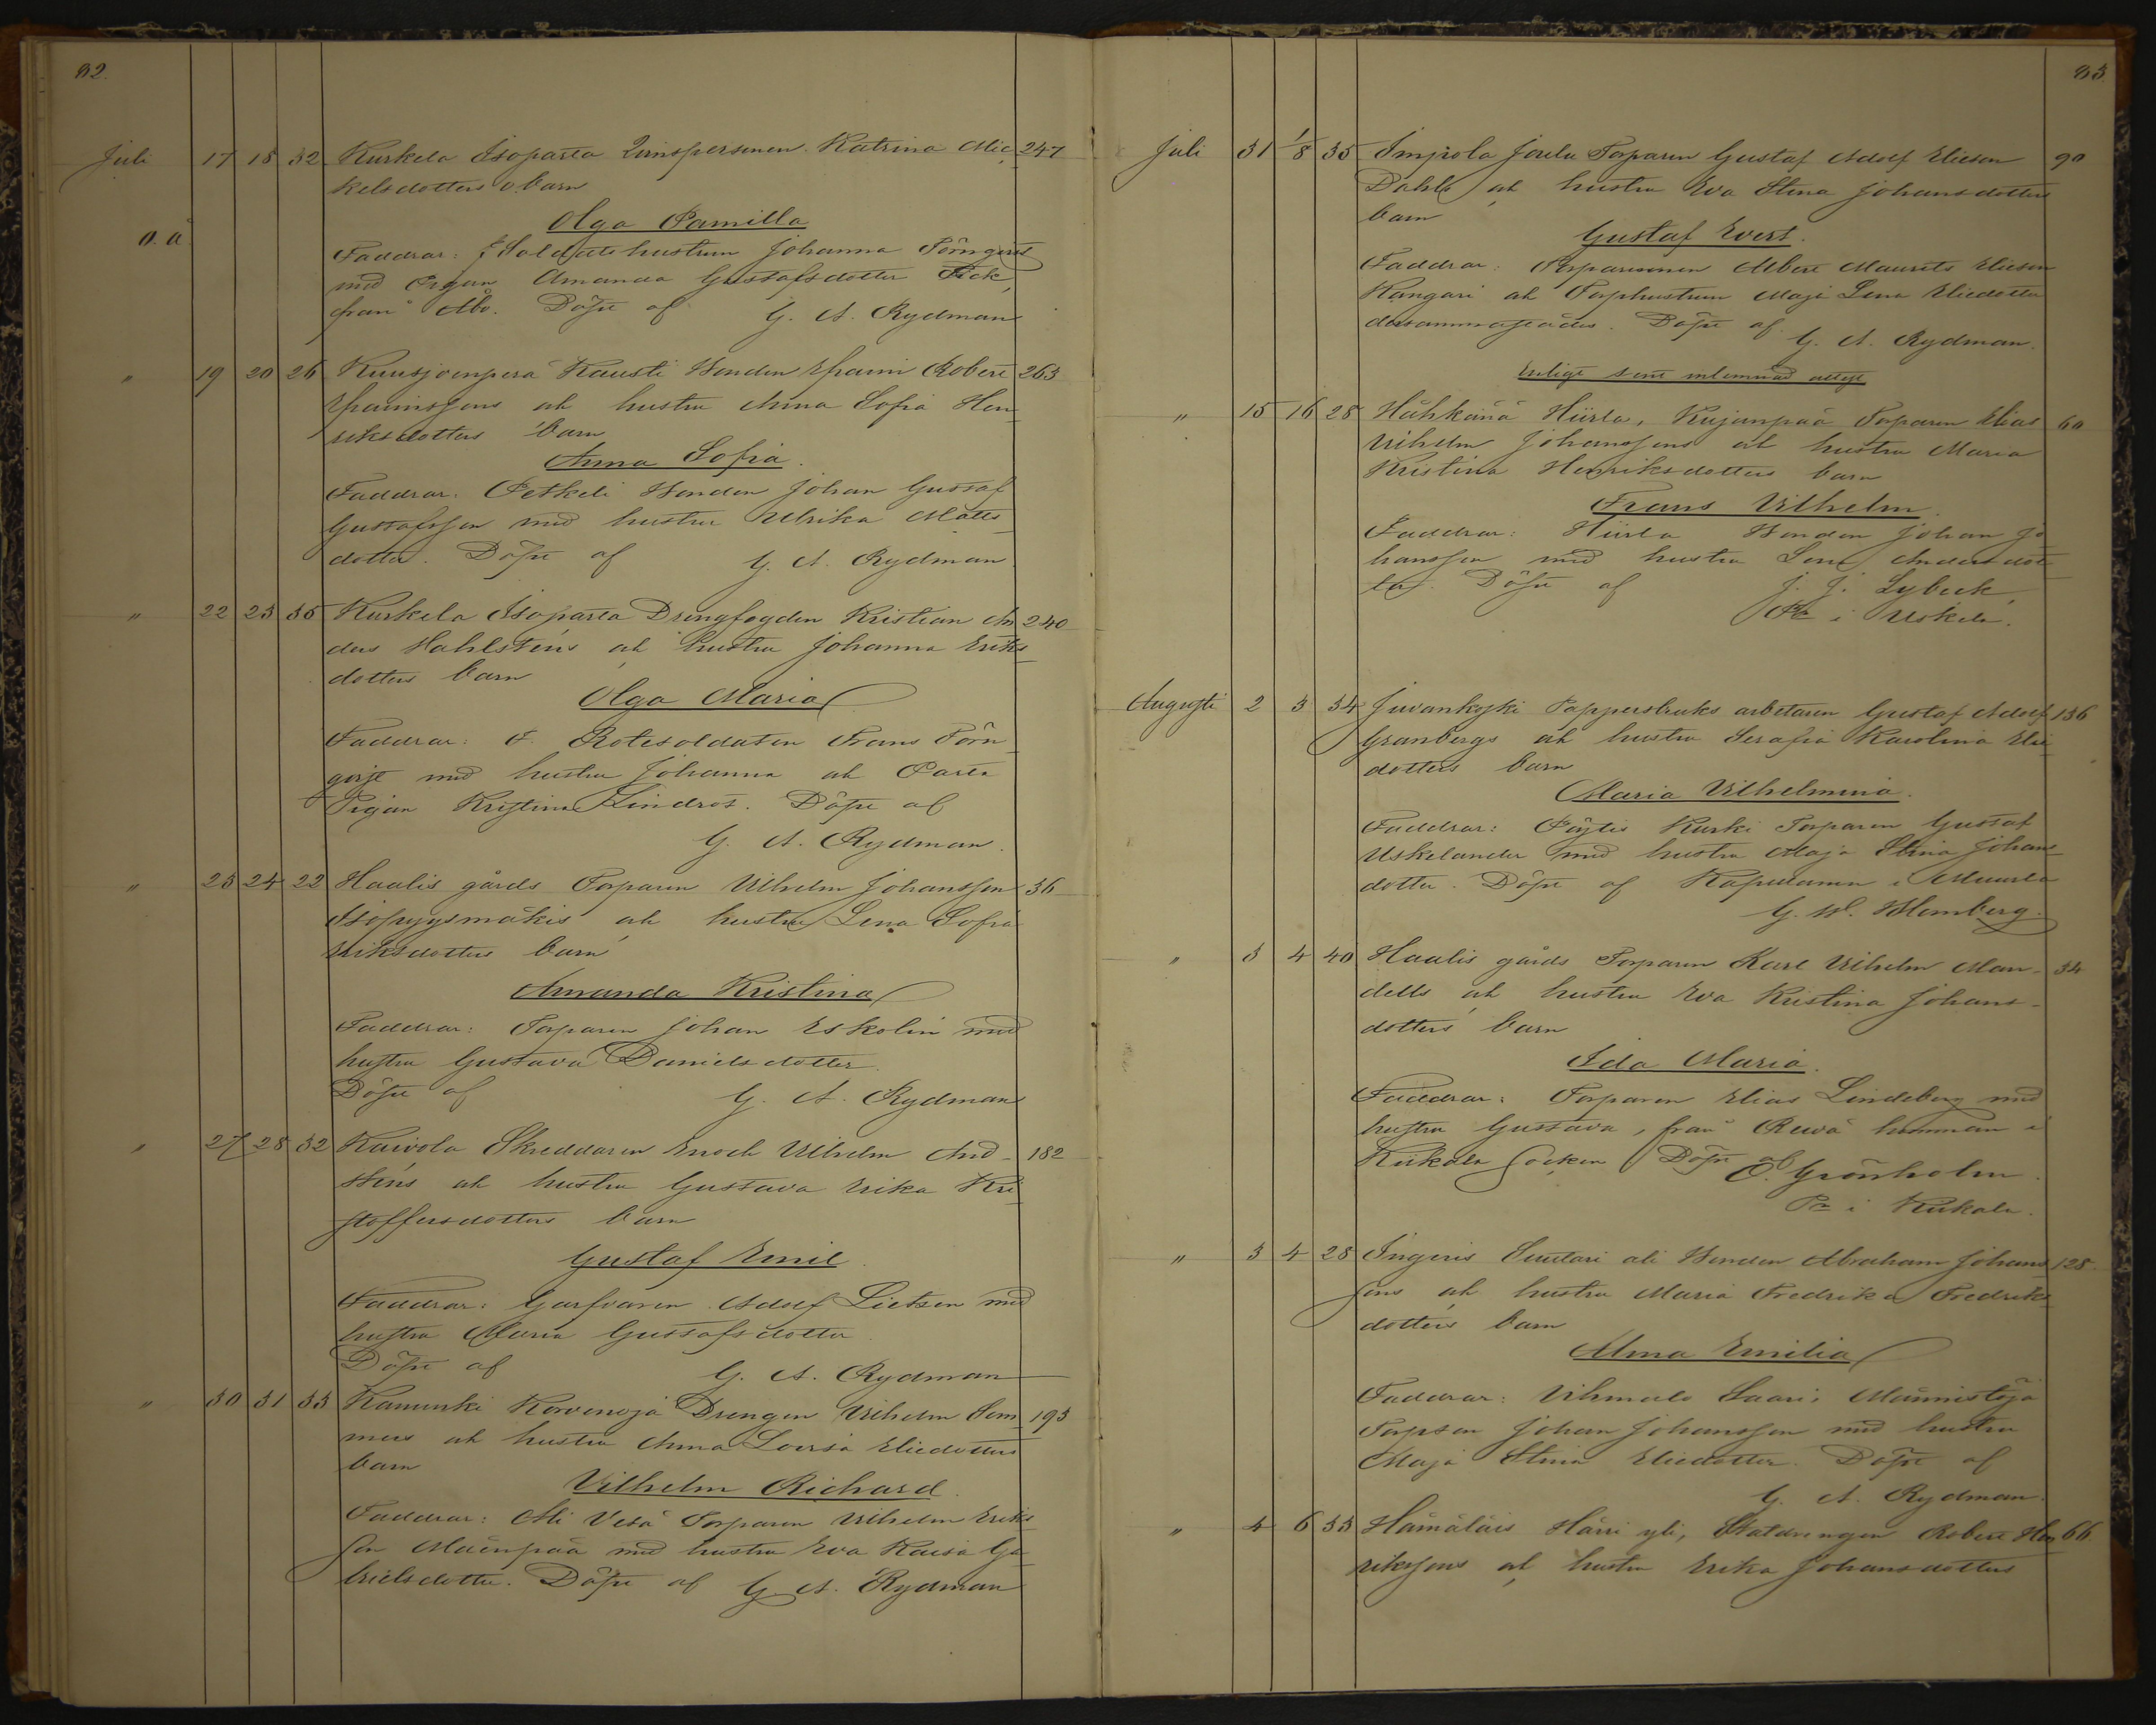 82.
Juli 17 18 32 Kurkela Isoparta Qvinspersonen Katrina Mic- 247
kelsdotters o. barn
Olga Pamilla
o. ä.
Faddrar: f Soldatshustrun Johanna Törngvist
med Amanda Gustafsdotter
från Åbo. Döpt af G. A. Rydman
" 19 20 26 Kuusjoenperä Kausti Bonden Efraim Robert 263
Efraimssons och hustru Anna Sofia Hen-
riksdotters barn
Anna Sofia.
Faddrar. Petkeli Bonden Johan Gustaf
Gustafsson med hustru Ulrika Matts-
dotter. Döpt af G. A. Rydman
" 22 23 35 Kurkela Isoparta Drengfogden Kristian An- 240
ders Hahlsténs och hustru Johanna Eriks-
dotters barn
Olga Maria
Faddrar: F. Rotesoldaten Frans Törn-
qvist med hustru Johanna och Parta
Pigan Kristina Lindros. Döpt af
G. A. Rydman.
" 23 24 22 Haalis gårds Torparen Vilhelm Johansson 36
Isopyysmäkis och hustru Lena Sofia
Eriksdotters barn
Amanda Kristina
Faddrar: Torparen Johan Eskolin med
hustru Gustava Danielsdotter.
Döpt af G. A. Rydman
" 27 28 32 Kaivola Skreddaren Enoch Vilhelm And- 182
sténs och hustru Gustava Erika Kri-
stoffersdotters barn
Gustaf Emil
Faddrar: Garfvaren Adolf Lietzen med
hustru Maria Gustafsdotter.
Döpt af G. A. Rydman
" 30 31 33 Kanunki Korvenoja Drengen Vilhelm Sem- 193
mers och hustru Anna Lovisa Eliedotters
barn
Vilhelm Richard.
Faddrar: Ali Vesa Torparen Vilhelm Eriks-
son Mäenpää med hustru Eva Kaisa Ga-
brielsdotter. Döpt af G. A. Rydman
83.
Juli 31 1/8 35 Impola Joulu Torparen Gustaf Adolf Elieson 90
Dahls och hustru Eva Stina Johansdotters
barn
Gustaf Evert.
Faddrar: Torparesonen Albert Maurits Elieson
Kangari och Torphustrun Maja Lena Eliedotter
dersammastädes. Döpt af G. A. Rydman.
Enligt sent inlemnad attest
" 15 16 28 Hähkänä Hiirla, Kujanpää Torparen Elias 60
Vilhelm Johanssons och hustru Maria
Kristina Henriksdotters barn
Frans Vilhelm.
Faddrar: Hiirla Bonden Johan Jo-
hansson med hustru Lena Andersdot-
ter. Döpt af J. J. Lybeck,
i Uskela.
Augusti 2 3 34 Juvankoski Pappersbruks arbetaren Gustaf Adolf 136
Granbergs och hustru Serafia Karolina Elie-
dotters barn
Maria Vilhelmina.
Faddrar: Pöytis Kurki Torparen Gustaf
Uskelander med hustru Maja Stina Johans-
dotter. Döpt af Kapellanen i Muurla
G. W. Blomberg.
" 3 4 40 Haalis gårds Torparen Karl Vilhelm Man- 34
dells och hustru Eva Kristina Johans-
dotters barn
Ida Maria.
Faddrar: Torparen Elias Lindeberg med
hustru Gustava, från Rewä hemman i
Kiikala socken Döpt af O. Grönholm.
i Kiikala.
" 3 4 28 Ingeris Suutari ali Bonden Abraham Johans- 128.
sons och hustru Maria Fredrika Fredriks-
dotters barn
Alma Emilia
Faddrar: Vihmalo Saari, Männistöjä
Torpson Johan Johansson med hustru
Maja Stina Eliedotter. Döpt af
G. A. Rydman.
" 4 6 33 Hämäläis Härri yli, Statdrengen Robert Hen- 66.
rikssons och hustru Erika Johansdotters